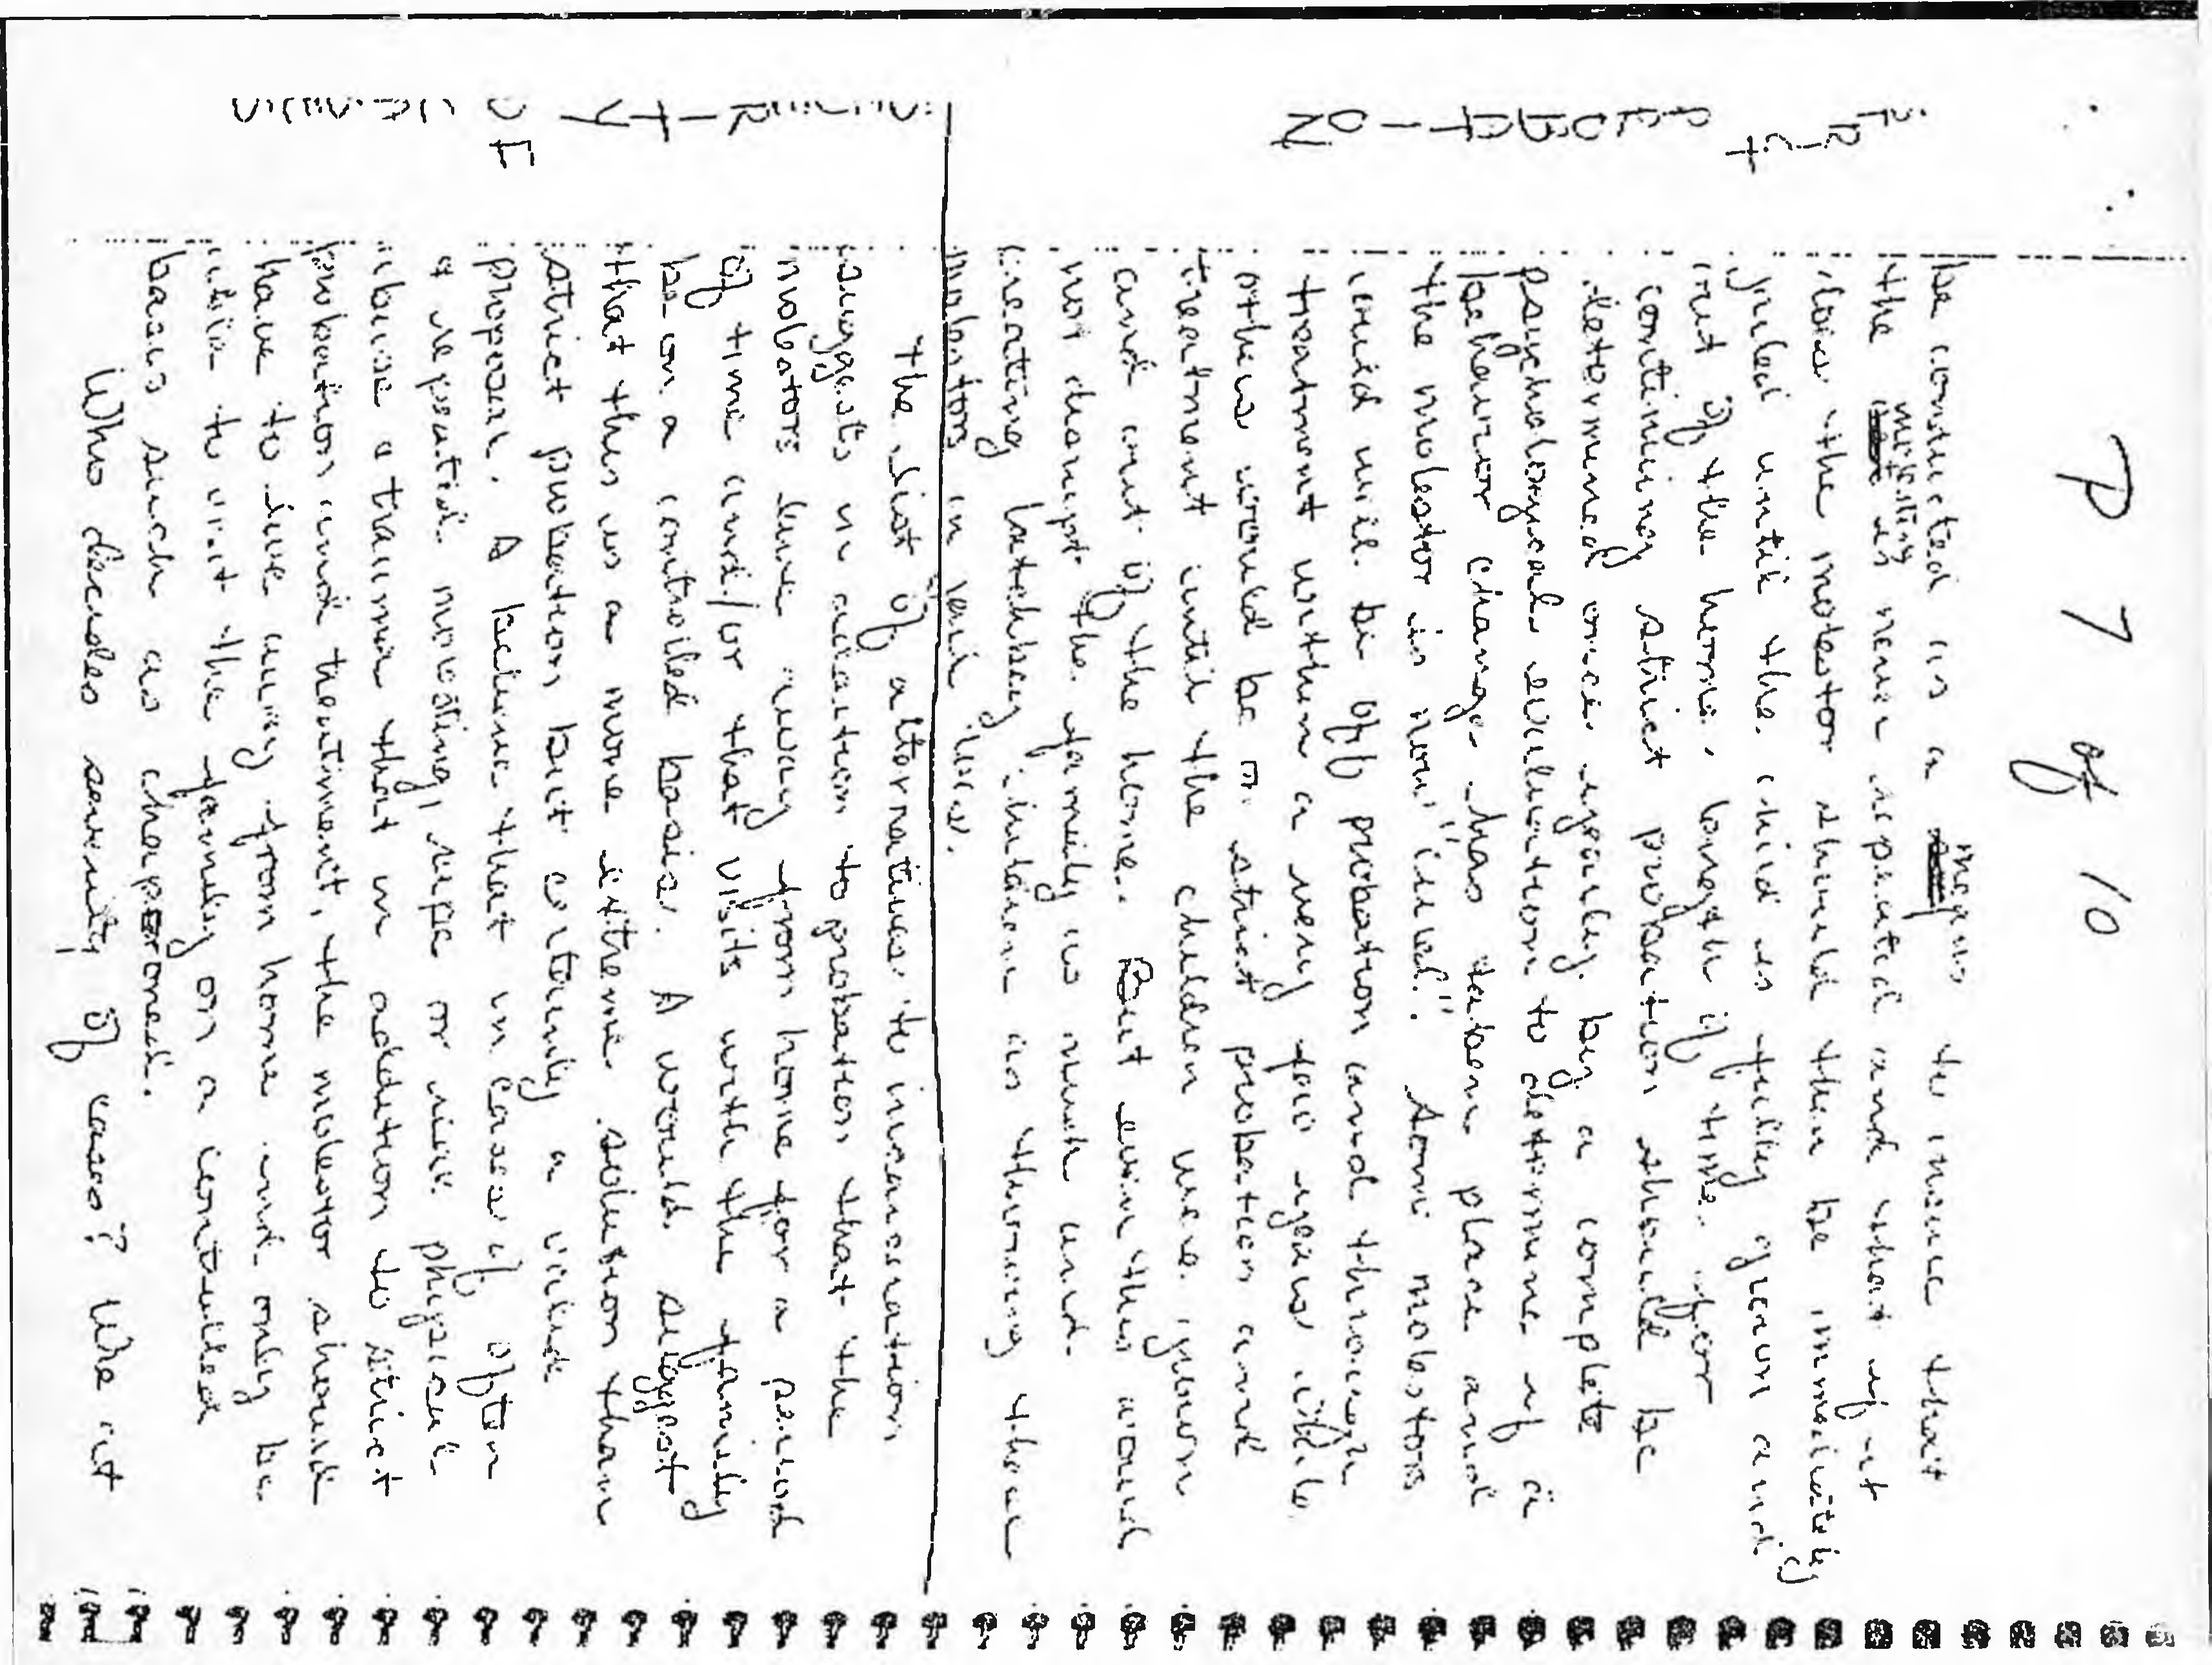 P 7 of 10
be conducted as a means to insure that
the molesting is never repeated and that if it
does the molestor should then be immediately
jailed until the child is fully grown and
out of the home. Length of time for
continuing strict probation should be
determined once yearly by a complete
psychological evaluation to determine if a
behavior change has taken place and
the molestor is now "cured". Some molestors
could well be off probation and through
treatment within a very few years while
others would be in strict probation and
treatment until the children were grown
and out of the home. But even this would
not disrupt the family as much and
creating latchkey children as throwing these
molestors in jail does.
The list of alternatives to incarceration
suggests in addition to probation that the
molestors live away from home for a period
of time and/or that visits with the family
be on a controlled basis. I would suggest
that this is a more extreme solution than
strict probation but certainly a valid
proposal. I believe that in cases of often
repeated molesting, rape or view physical
abuse a trauma that in addition to strict
probation and treatment, the molestor should
have to live away from home and only be
able to visit the family on a controlled
basis such as chaperoned.
Who decides severity of cases? We at
STRICT PROBATION
SEVERITY OF